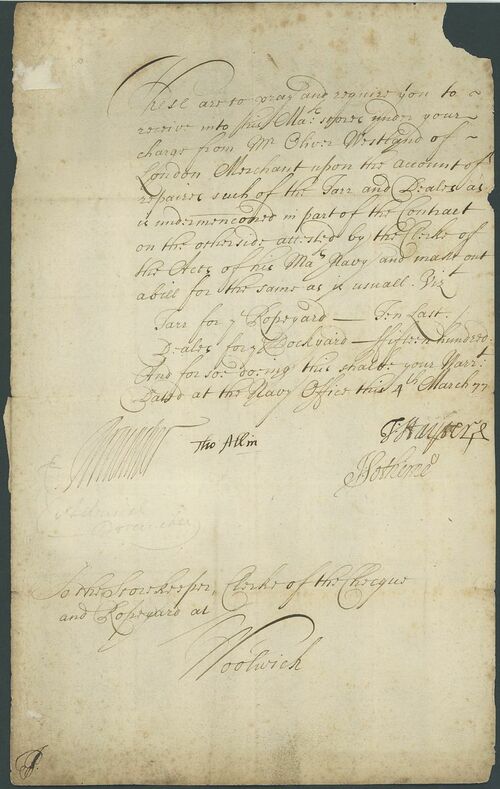 These are to pray and require you to
receive into his Mats stores under your
charge from Mr Oliver Westland of
London Merchant upon the Account of
repaires such of the Tarr and Deales as
is undermenconed in part of the Contract
on the otherside attested by the Clerke of
the Acts of his Mats Navy and make out
a bill for the same as is usuall. Vizt
Tarr for ye Ropeyard — Ten Last.
Deales for ye Dockyard — fifteen hundred.
And for soe doeing this shalbe your Warrt.
Dated at the Navy Office this 4th March 77
Tho Allin
To the Storekeeper, Clerke of the Checque
and Ropeyard at
Woolwich